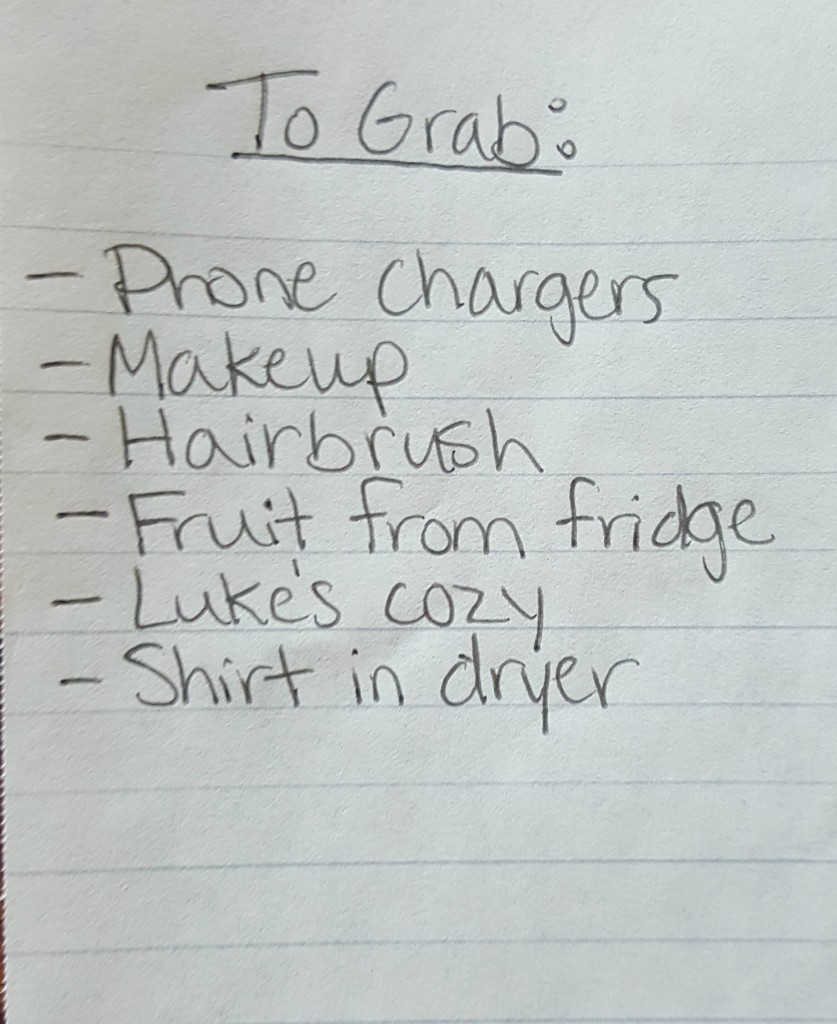 To Grab:
- Phone chargers
- Makeup
- Hairbrush
- Fruit from fridge
- Luke's cozy
- Shirt in dryer